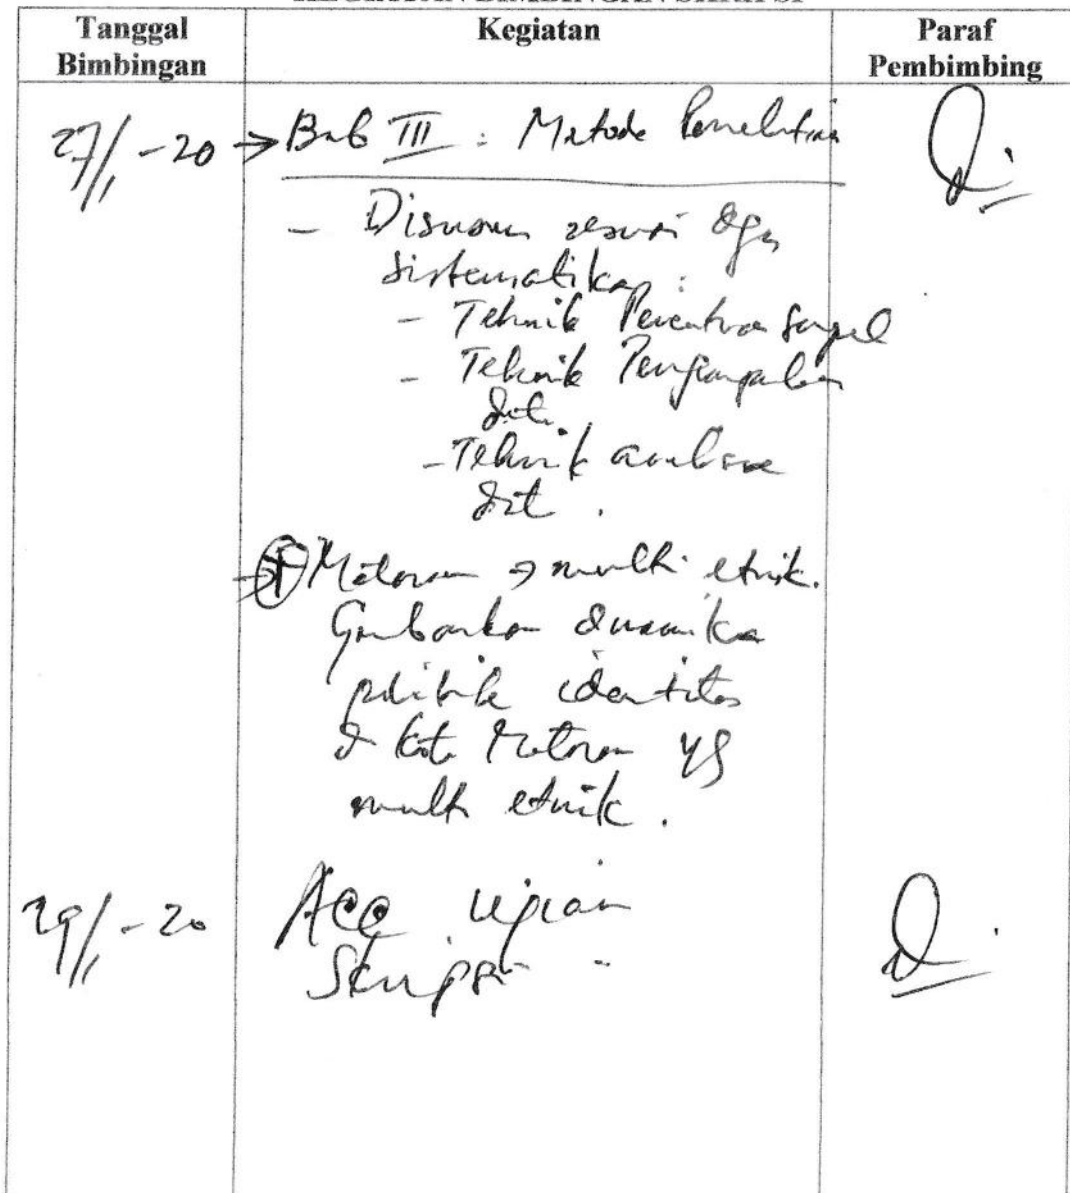 KEGIATAN BIMBINGAN SKRIPSI
Tanggal Bimbingan
Kegiatan
Paraf Pembimbing
27/1 -20 → Bab III : Metode Penelitian
- Disusun sesuai dgn
sistematika :
- Tehnik Penentuan Sampel
- Tehnik Pengumpulan
dat
- Tehnik analisa
dat .
Mataram → multi etnik.
Gambarkan dinamika
politik identitas
d kota Mataram yg
multi etnik .
29/1 -20 Acc ujian
Skripsi